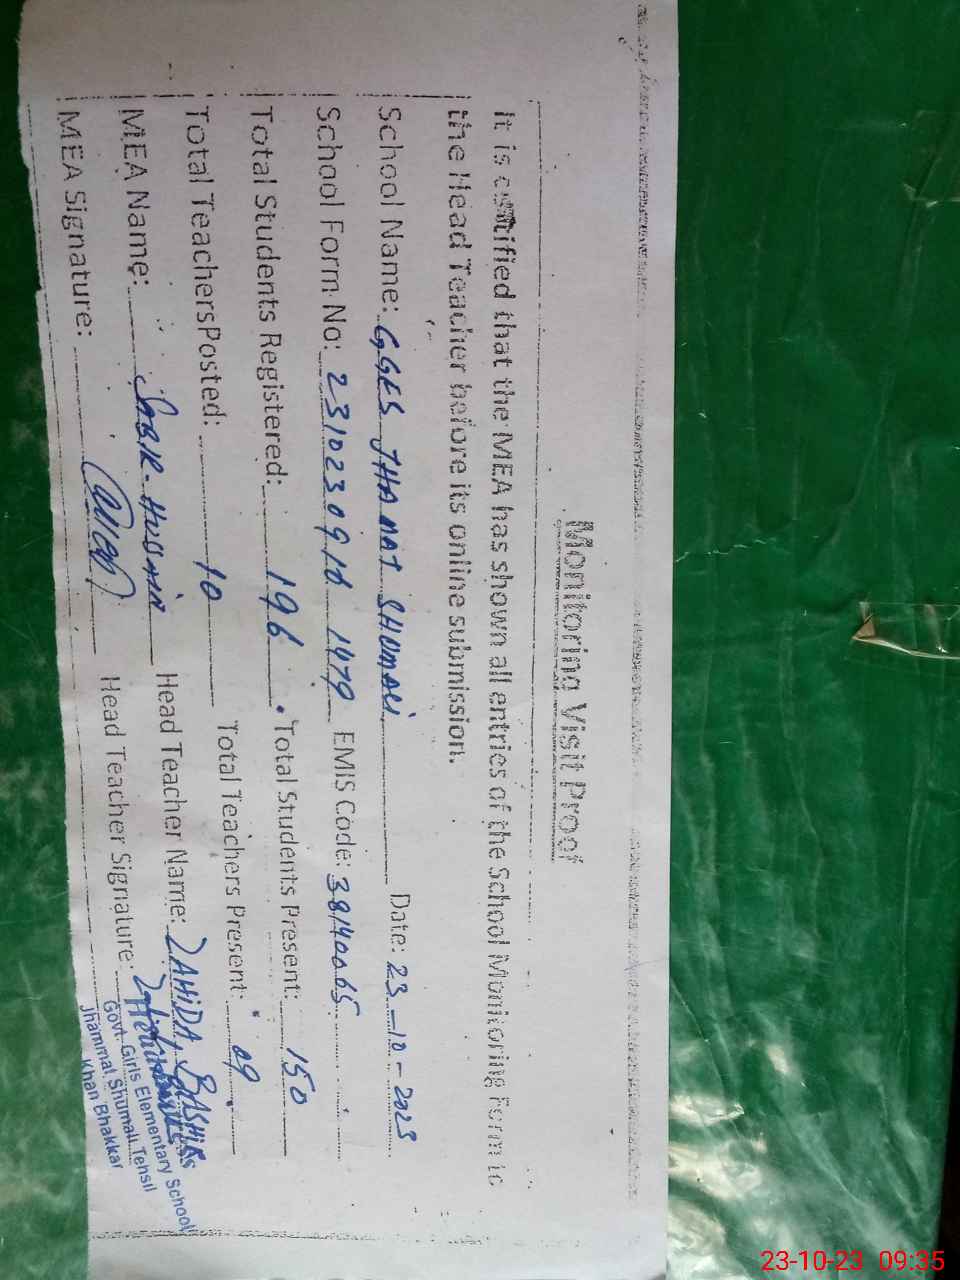 Monitoring Visit Proof
It is certified that the MEA has shown all entries of the School Monitoring Form to
the Head Teacher before its online submission.
School Name: GGES JHAMMAT SHUMALI Date: 23-10-2023
School Form No: 231023091 1479 EMIS Code: 38140065
Total Students Registered: 196 Total Students Present: 150
Total Teachers Posted: 10 Total Teachers Present: 09
MEA Name: SABIR HUSSAIN Head Teacher Name: ZAHIDA BASHIR
MEA Signature: Head Teacher Signature:
Headmistress
Govt. Girls Elementary School
Jhammat Shumali Tehsil
Khan Bhakkar
23-10-23 09:35